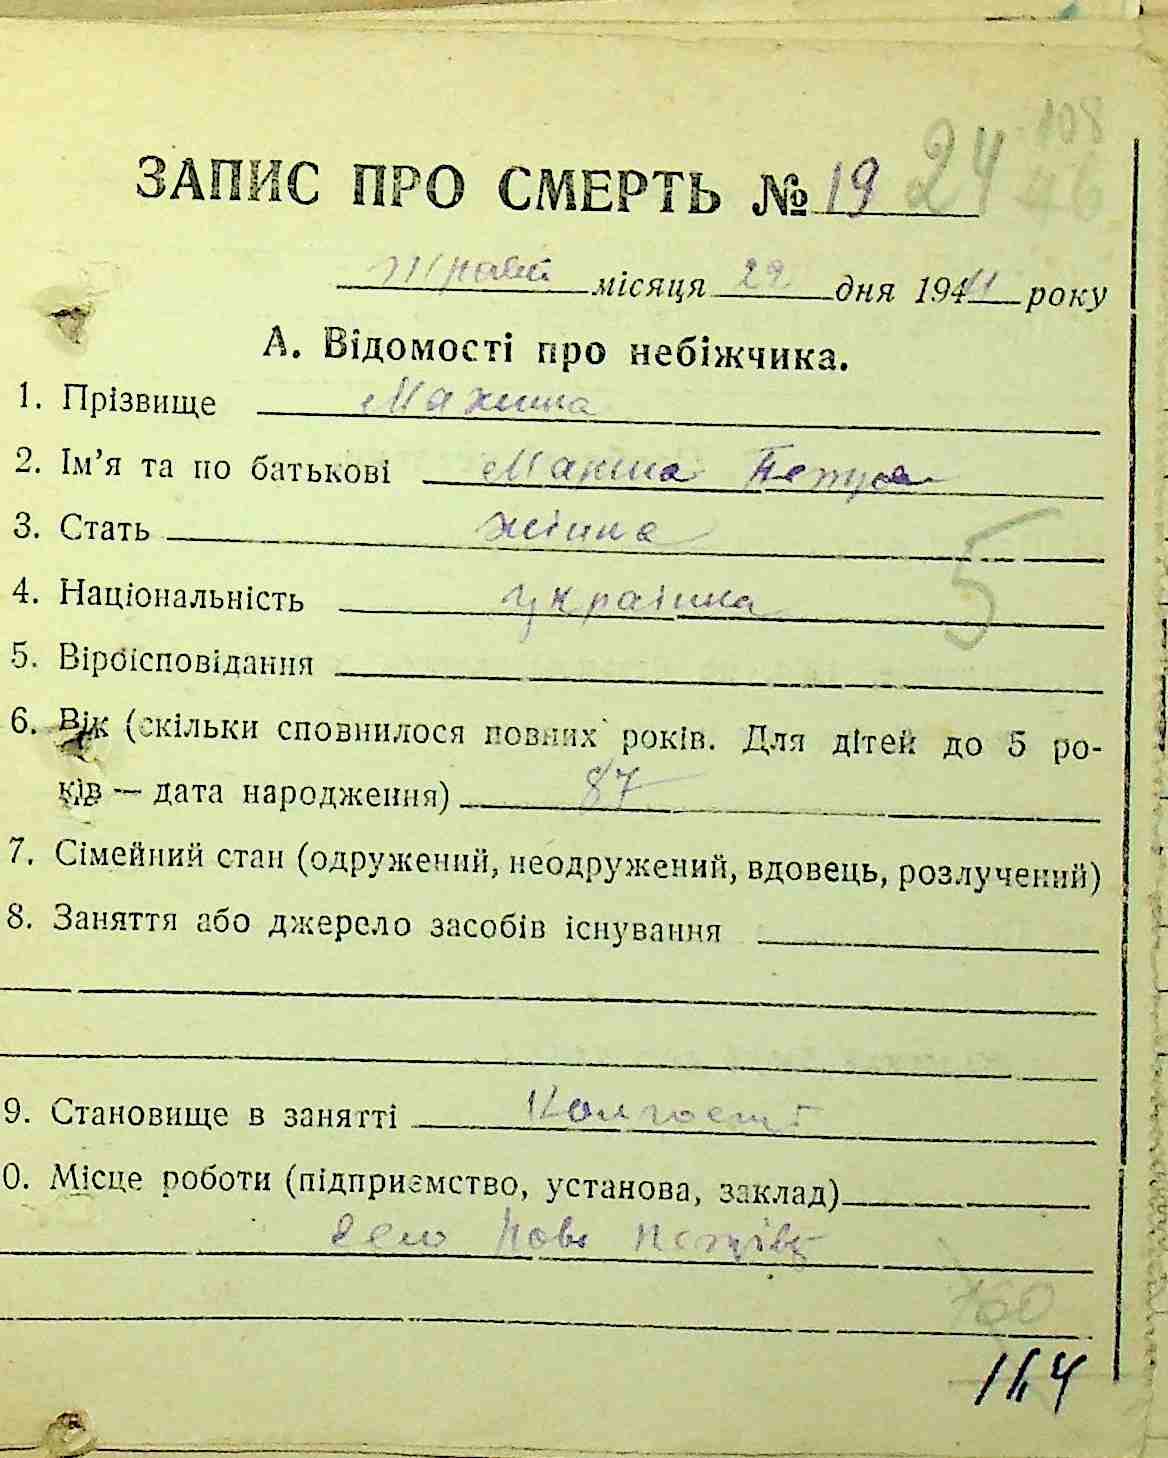 108
24 46
ЗАПИС ПРО СМЕРТЬ № 19
Травень місяця 29 дня 1941 року
А. Відомості про небіжчика.
1. Прізвище Махина
2. Ім’я та по батькові Макина Петро
3. Стать жінка
4. Національність українка
5
5. Віроісповідання
6. Вік (скільки сповнилося повних років. Для дітей до 5 ро-
ків — дата народження) 87
7. Сімейний стан (одружений, неодружений, вдовець, розлучений)
8. Заняття або джерело засобів існування
9. Становище в занятті Колгосп
0. Місце роботи (підприємство, установа, заклад)
село Нове
160
114